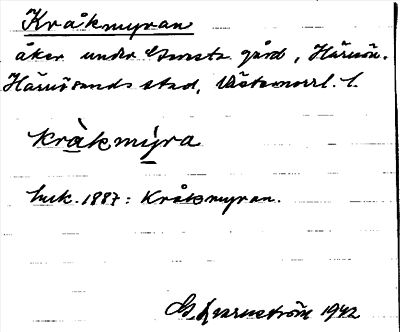 Kråkmyran
åker under Gånsta gård, Härnön.
Härnösands stad, Västernorrl. l.
kràkmýra
huk. 1887: Kråkmyran.
G. Kvarnström 1942